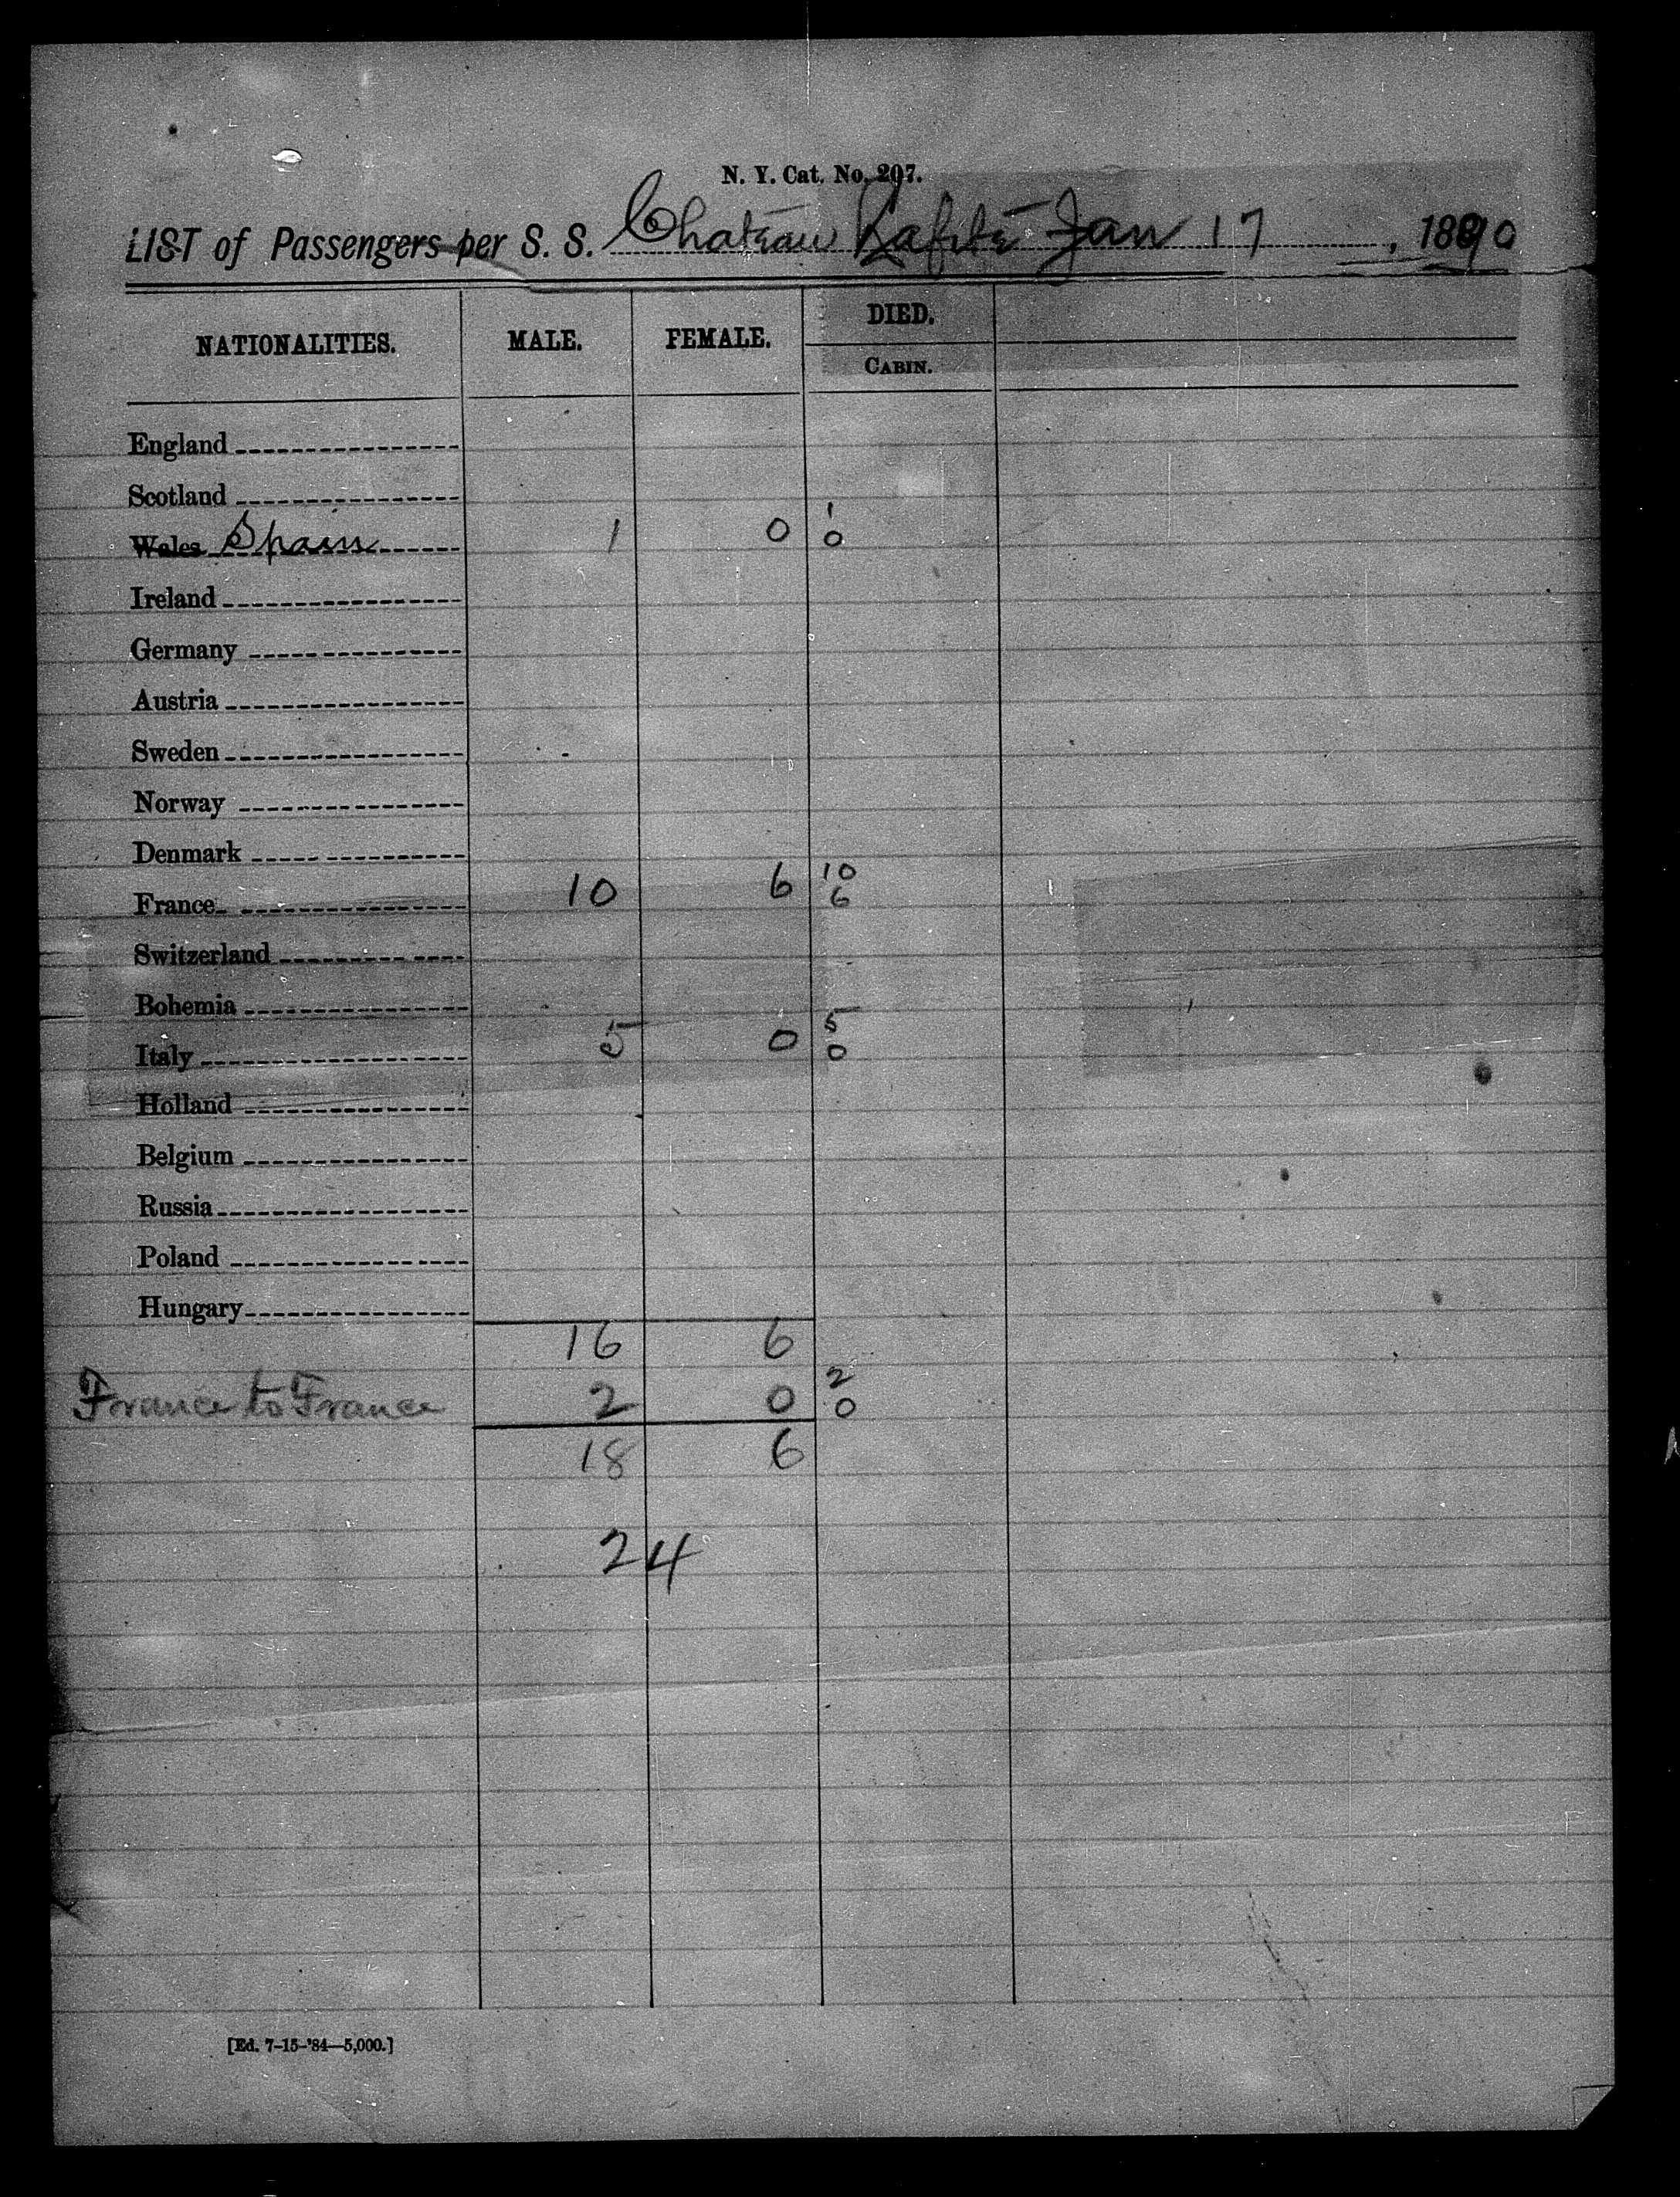 N. Y. Cat. No. 207.
LIST of Passengers per S. S. Chateau Lafite Jan 17, 1890
NATIONALITIES. MALE. FEMALE. DIED.
CABIN.
England
Scotland
Wales Spain 1 0 1 0
Ireland
Germany
Austria
Sweden
Norway
Denmark
France 10 6 10 6
Switzerland
Bohemia
Italy 5 0 5 0
Holland
Belgium
Russia
Poland
Hungary
16 6
France to France 2 0 2 0
18 6
24
[Ed. 7-15-'84—5,000.]